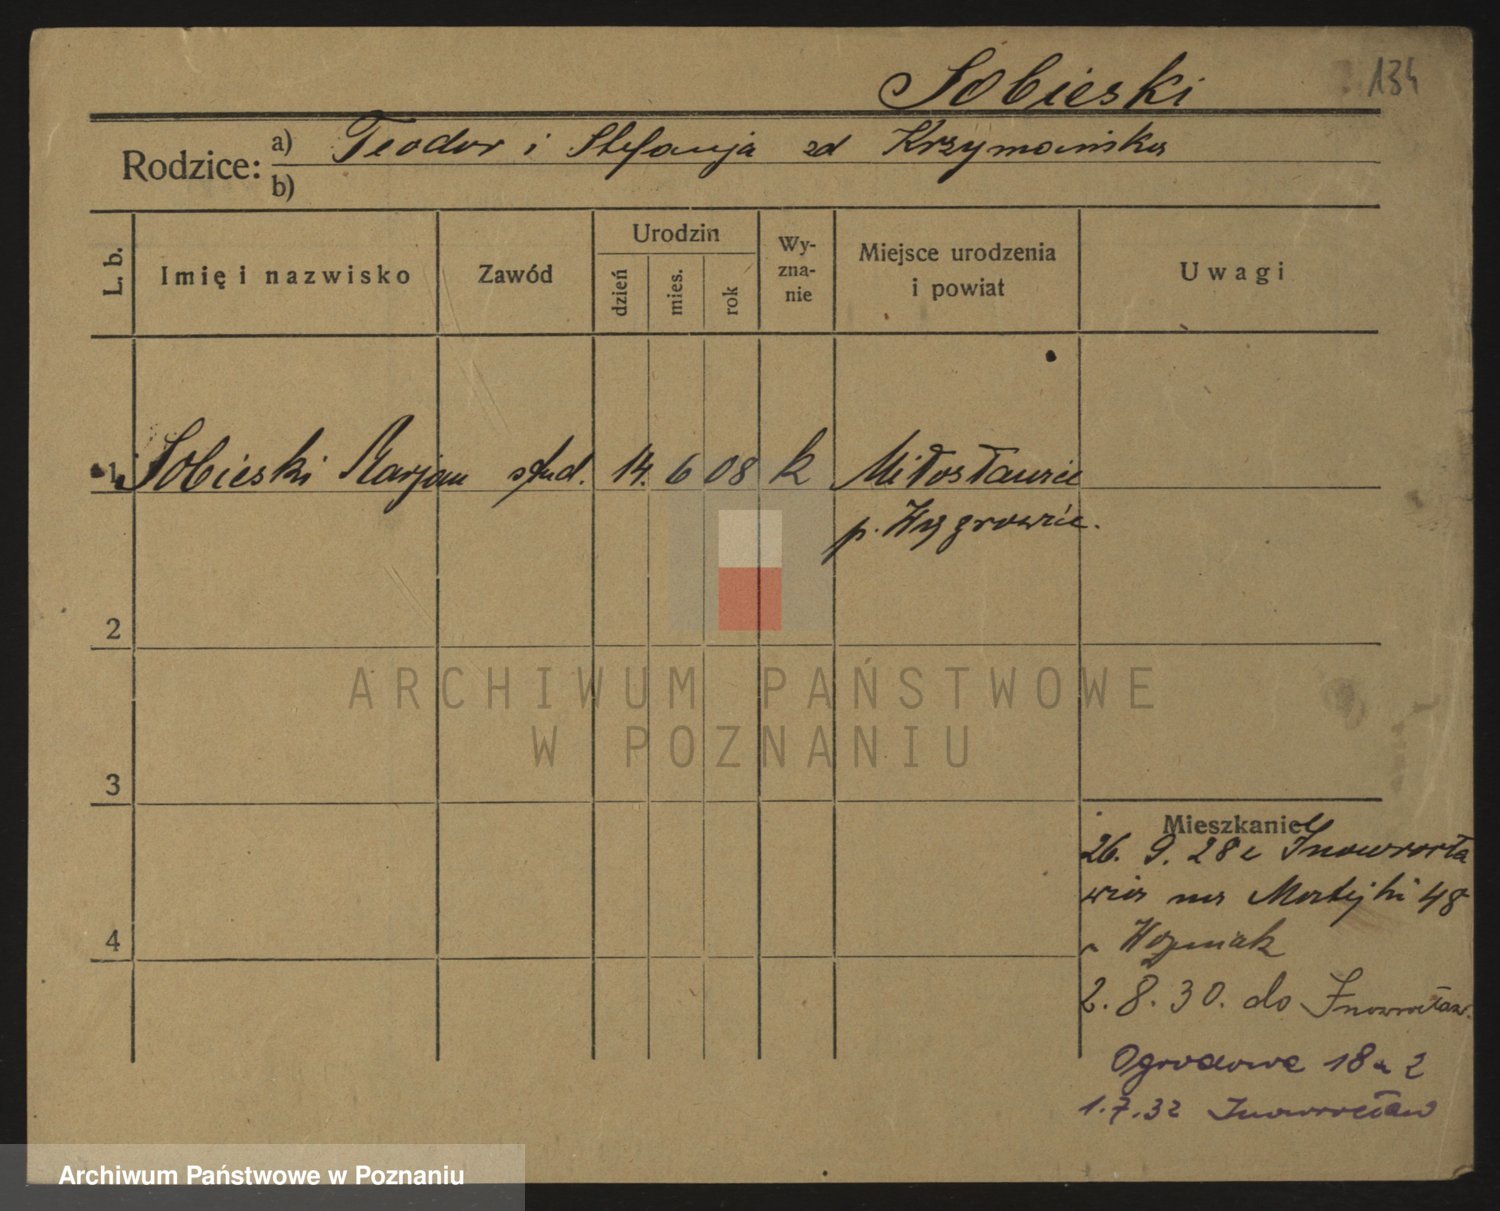 Sobieski
134
Rodzice: a) Teodor i Stefanja zd Krzymańska
b)
L. b.
Imię i nazwisko
Zawód
Urodzin
dzień
mies.
rok
Wy-
zna-
nie
Miejsce urodzenia
i powiat
Uwagi
1 Sobieski Marjan stud. 14. 6 08 k Miłosławice
p. Wągrowiec.
2
3
4
Mieszkanie
26. 9. 28 z Inowrocła
wia na Matejki 48
Woźniak
2. 8. 30. do Inowrocław.
Ogrodowa 18 2
1.7.32 Inowrocław
ARCHIWUM PAŃSTWOWE
W POZNANIU
Archiwum Państwowe w Poznaniu